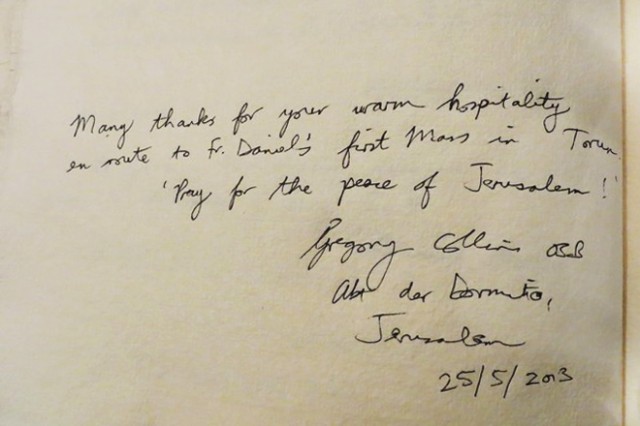 Many thanks for your warm hospitality
en route to Fr. Daniel's first Mass in Torun.
'Pray for the peace of Jerusalem!'
Gregory Collins OSB
Abt der Dormitio,
Jerusalem
25/5/2013